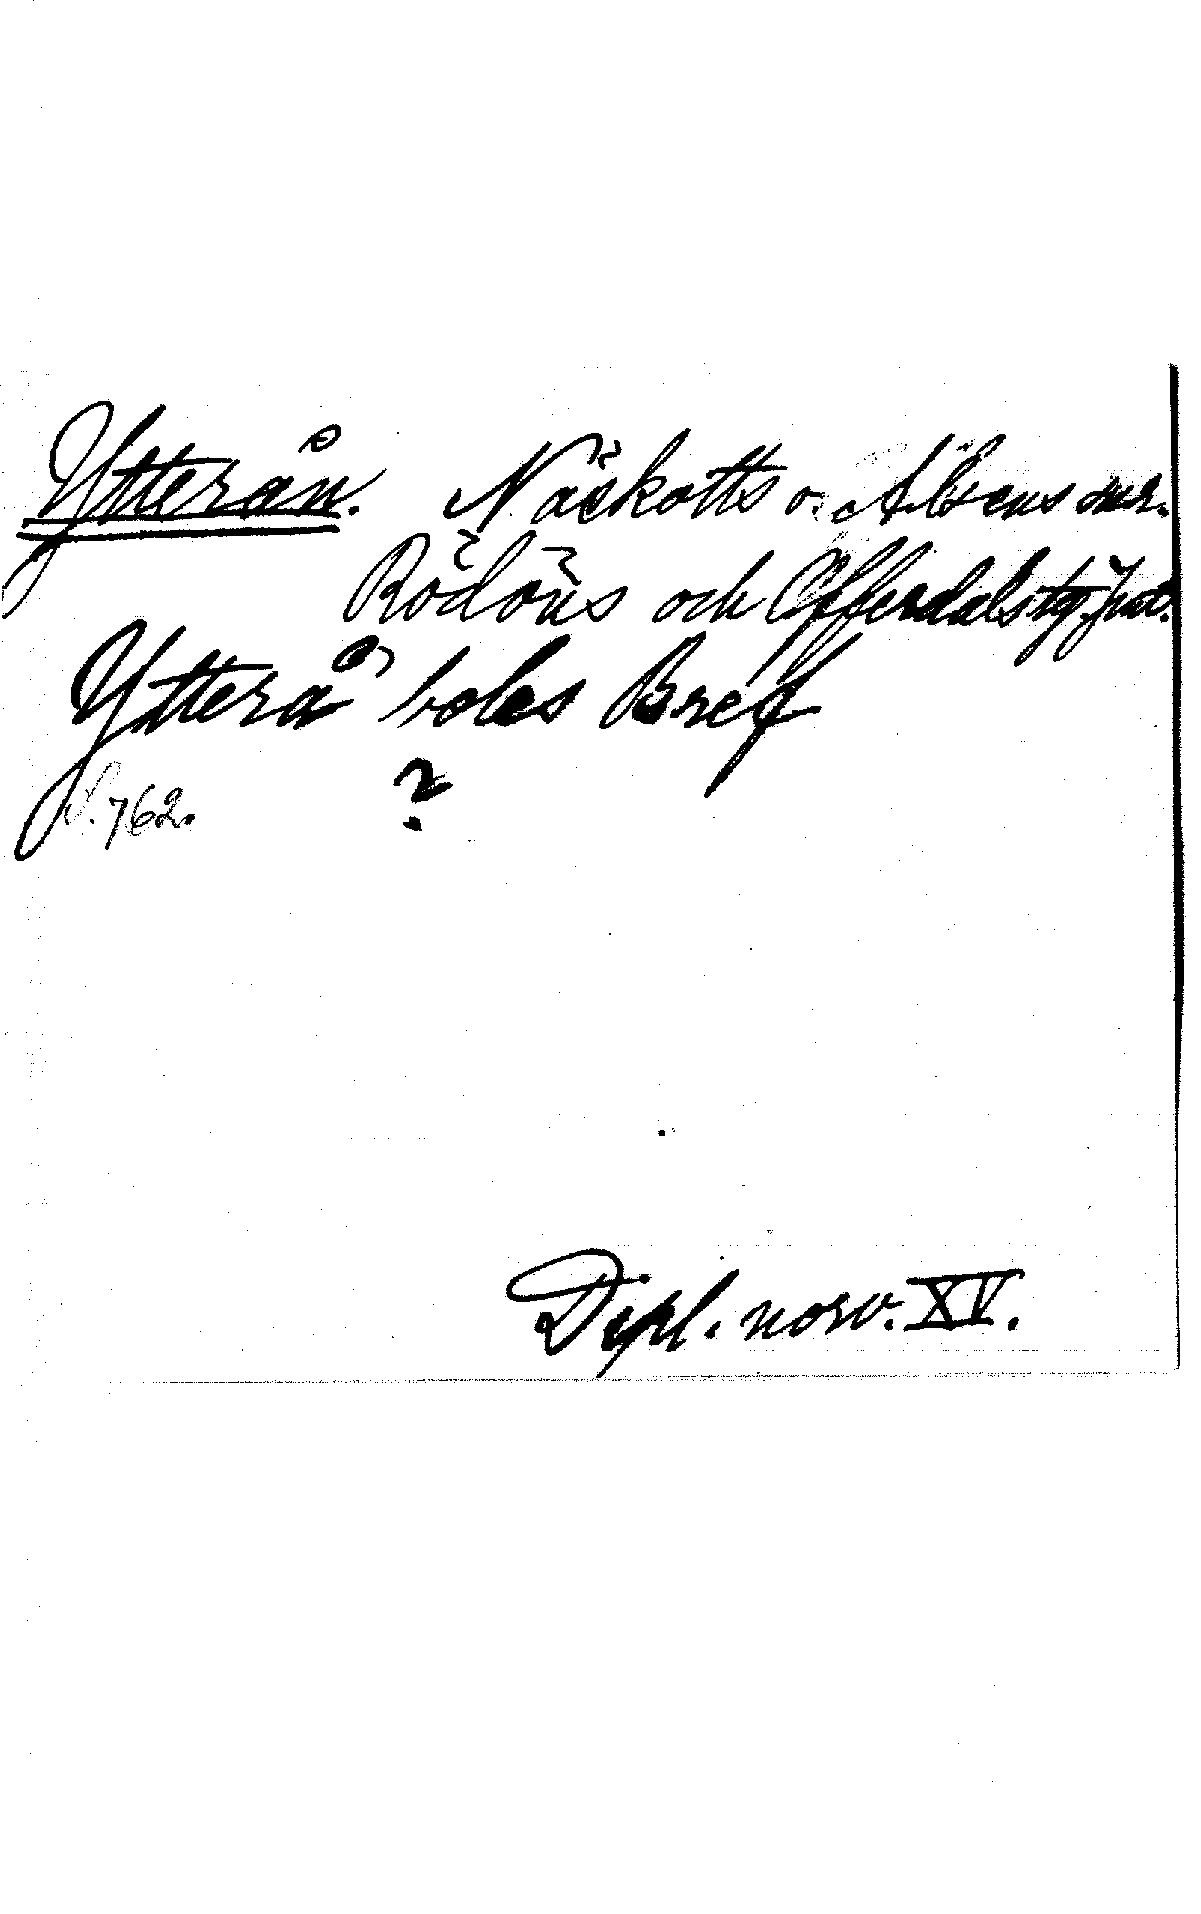 Ytterån. Näskotts o. Alsens snr.
Rödöns och Offerdals tg. Jmt.
Ytterå boles Bref
S. 762. ?
Dipl. norv. XV.